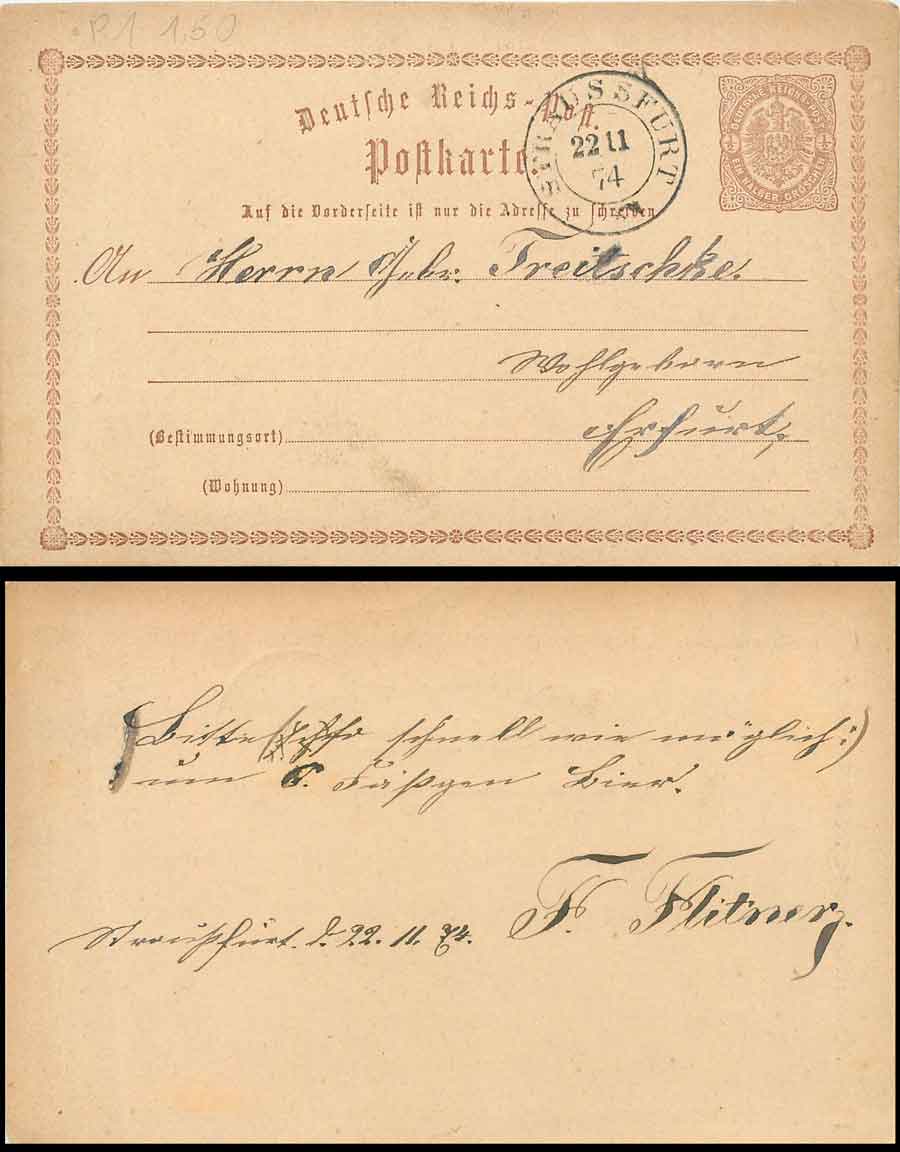 P1 1,50
Deutsche Reichs-Post.
Postkarte
STRAUSSFURT
22 11
74
DEUTSCHE REICHS-POST
½ ½
EIN HALBER GROSCHEN
Auf die Vorderseite ist nur die Adresse zu schreiben
An Herrn Gebr. Treitschke.
Wohlgeborn
(Bestimmungsort) Erfurt,
(Wohnung)
Bitte so schnell wie möglich:)
um 6. Fäßgen Bier.
F. Flitner
Straußfurt. d. 22. 11. 74.